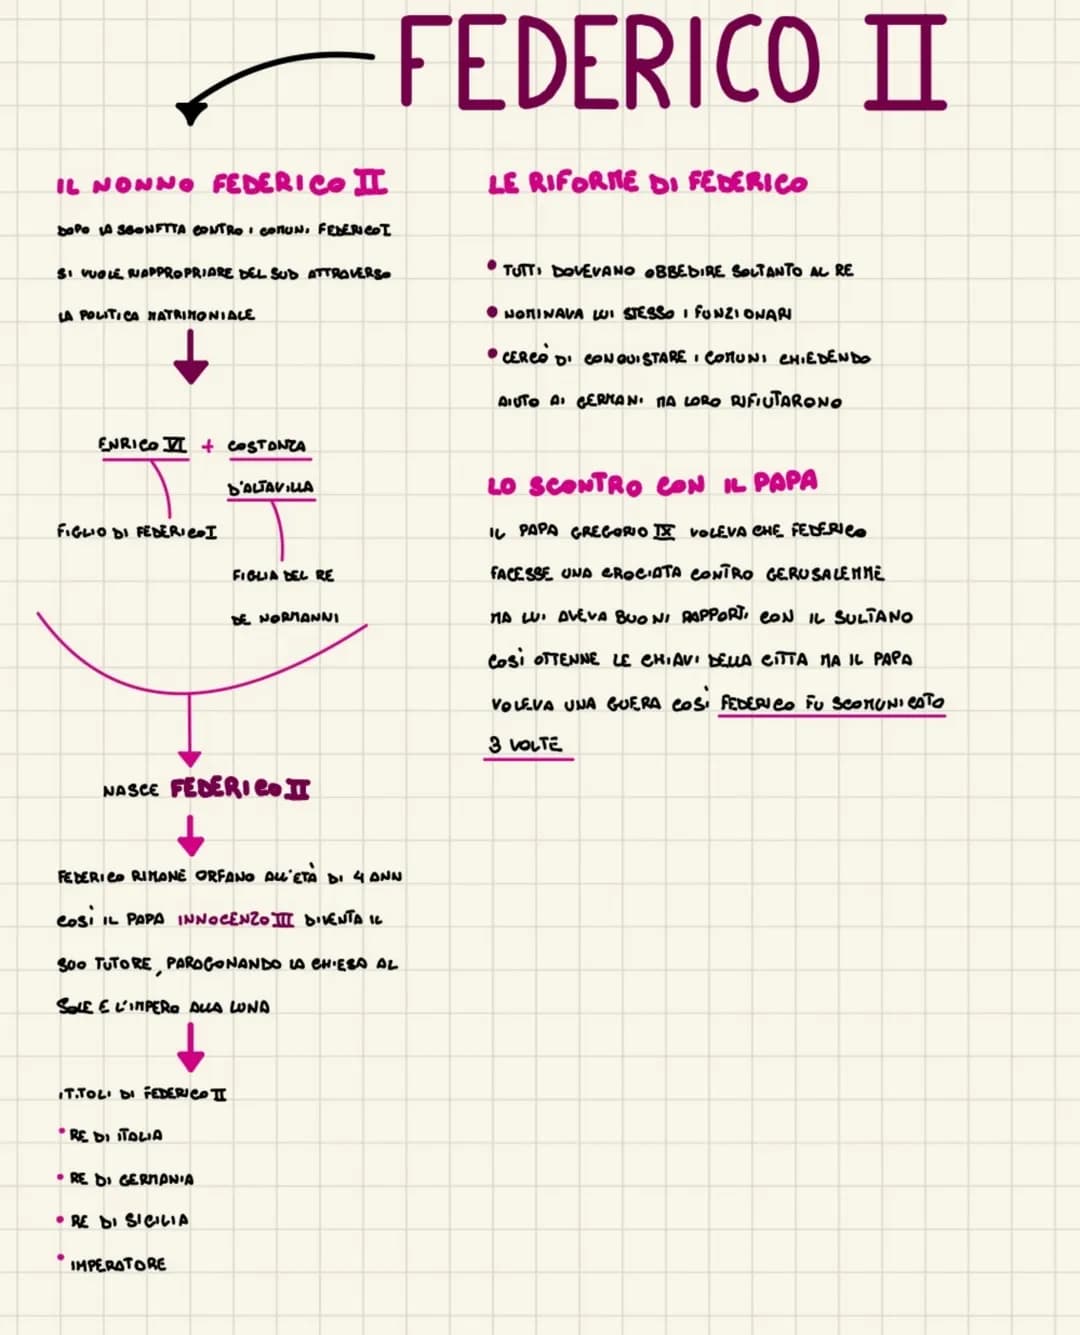 FEDERICO II
IL NONNO FEDERICO II
DOPO LA SCONFTTA CONTRO I COMUNI FEDERICO I
SI VUOLE RIAPPROPRIARE DEL SUD ATTRAVERSO
LA POLITICA MATRIMONIALE
ENRICO VI + COSTANZA
D'ALTAVILLA
FIGLIO DI FEDERICO I
FIGLIA DEL RE
DE NORMANNI
NASCE FEDERICO II
FEDERICO RIMANE ORFANO ALL'ETÀ DI 4 ANN
COSÌ IL PAPA INNOCENZO III DIVENTA IL
SUO TUTORE, PARAGONANDO LA CHIESA AL
SOLE E L'IMPERO ALLA LUNA
I TITOLI DI FEDERICO II
• RE DI ITALIA
• RE DI GERMANIA
• RE DI SICILIA
• IMPERATORE
LE RIFORME DI FEDERICO
• TUTTI DOVEVANO OBBEDIRE SOLTANTO AL RE
• NOMINAVA LUI STESSO I FUNZIONARI
• CERCÒ DI CONQUISTARE I COMUNI CHIEDENDO
AIUTO AI GERMANI MA LORO RIFIUTARONO
LO SCONTRO CON IL PAPA
IL PAPA GREGORIO IX VOLEVA CHE FEDERICO
FACESSE UNA CROCIATA CONTRO GERUSALEMME
MA LUI AVEVA BUONI RAPPORTI CON IL SULTANO
COSÌ OTTENNE LE CHIAVI DELLA CITTA MA IL PAPA
VOLEVA UNA GUERA COSÌ FEDERICO FU SCOMUNICATO
3 VOLTE